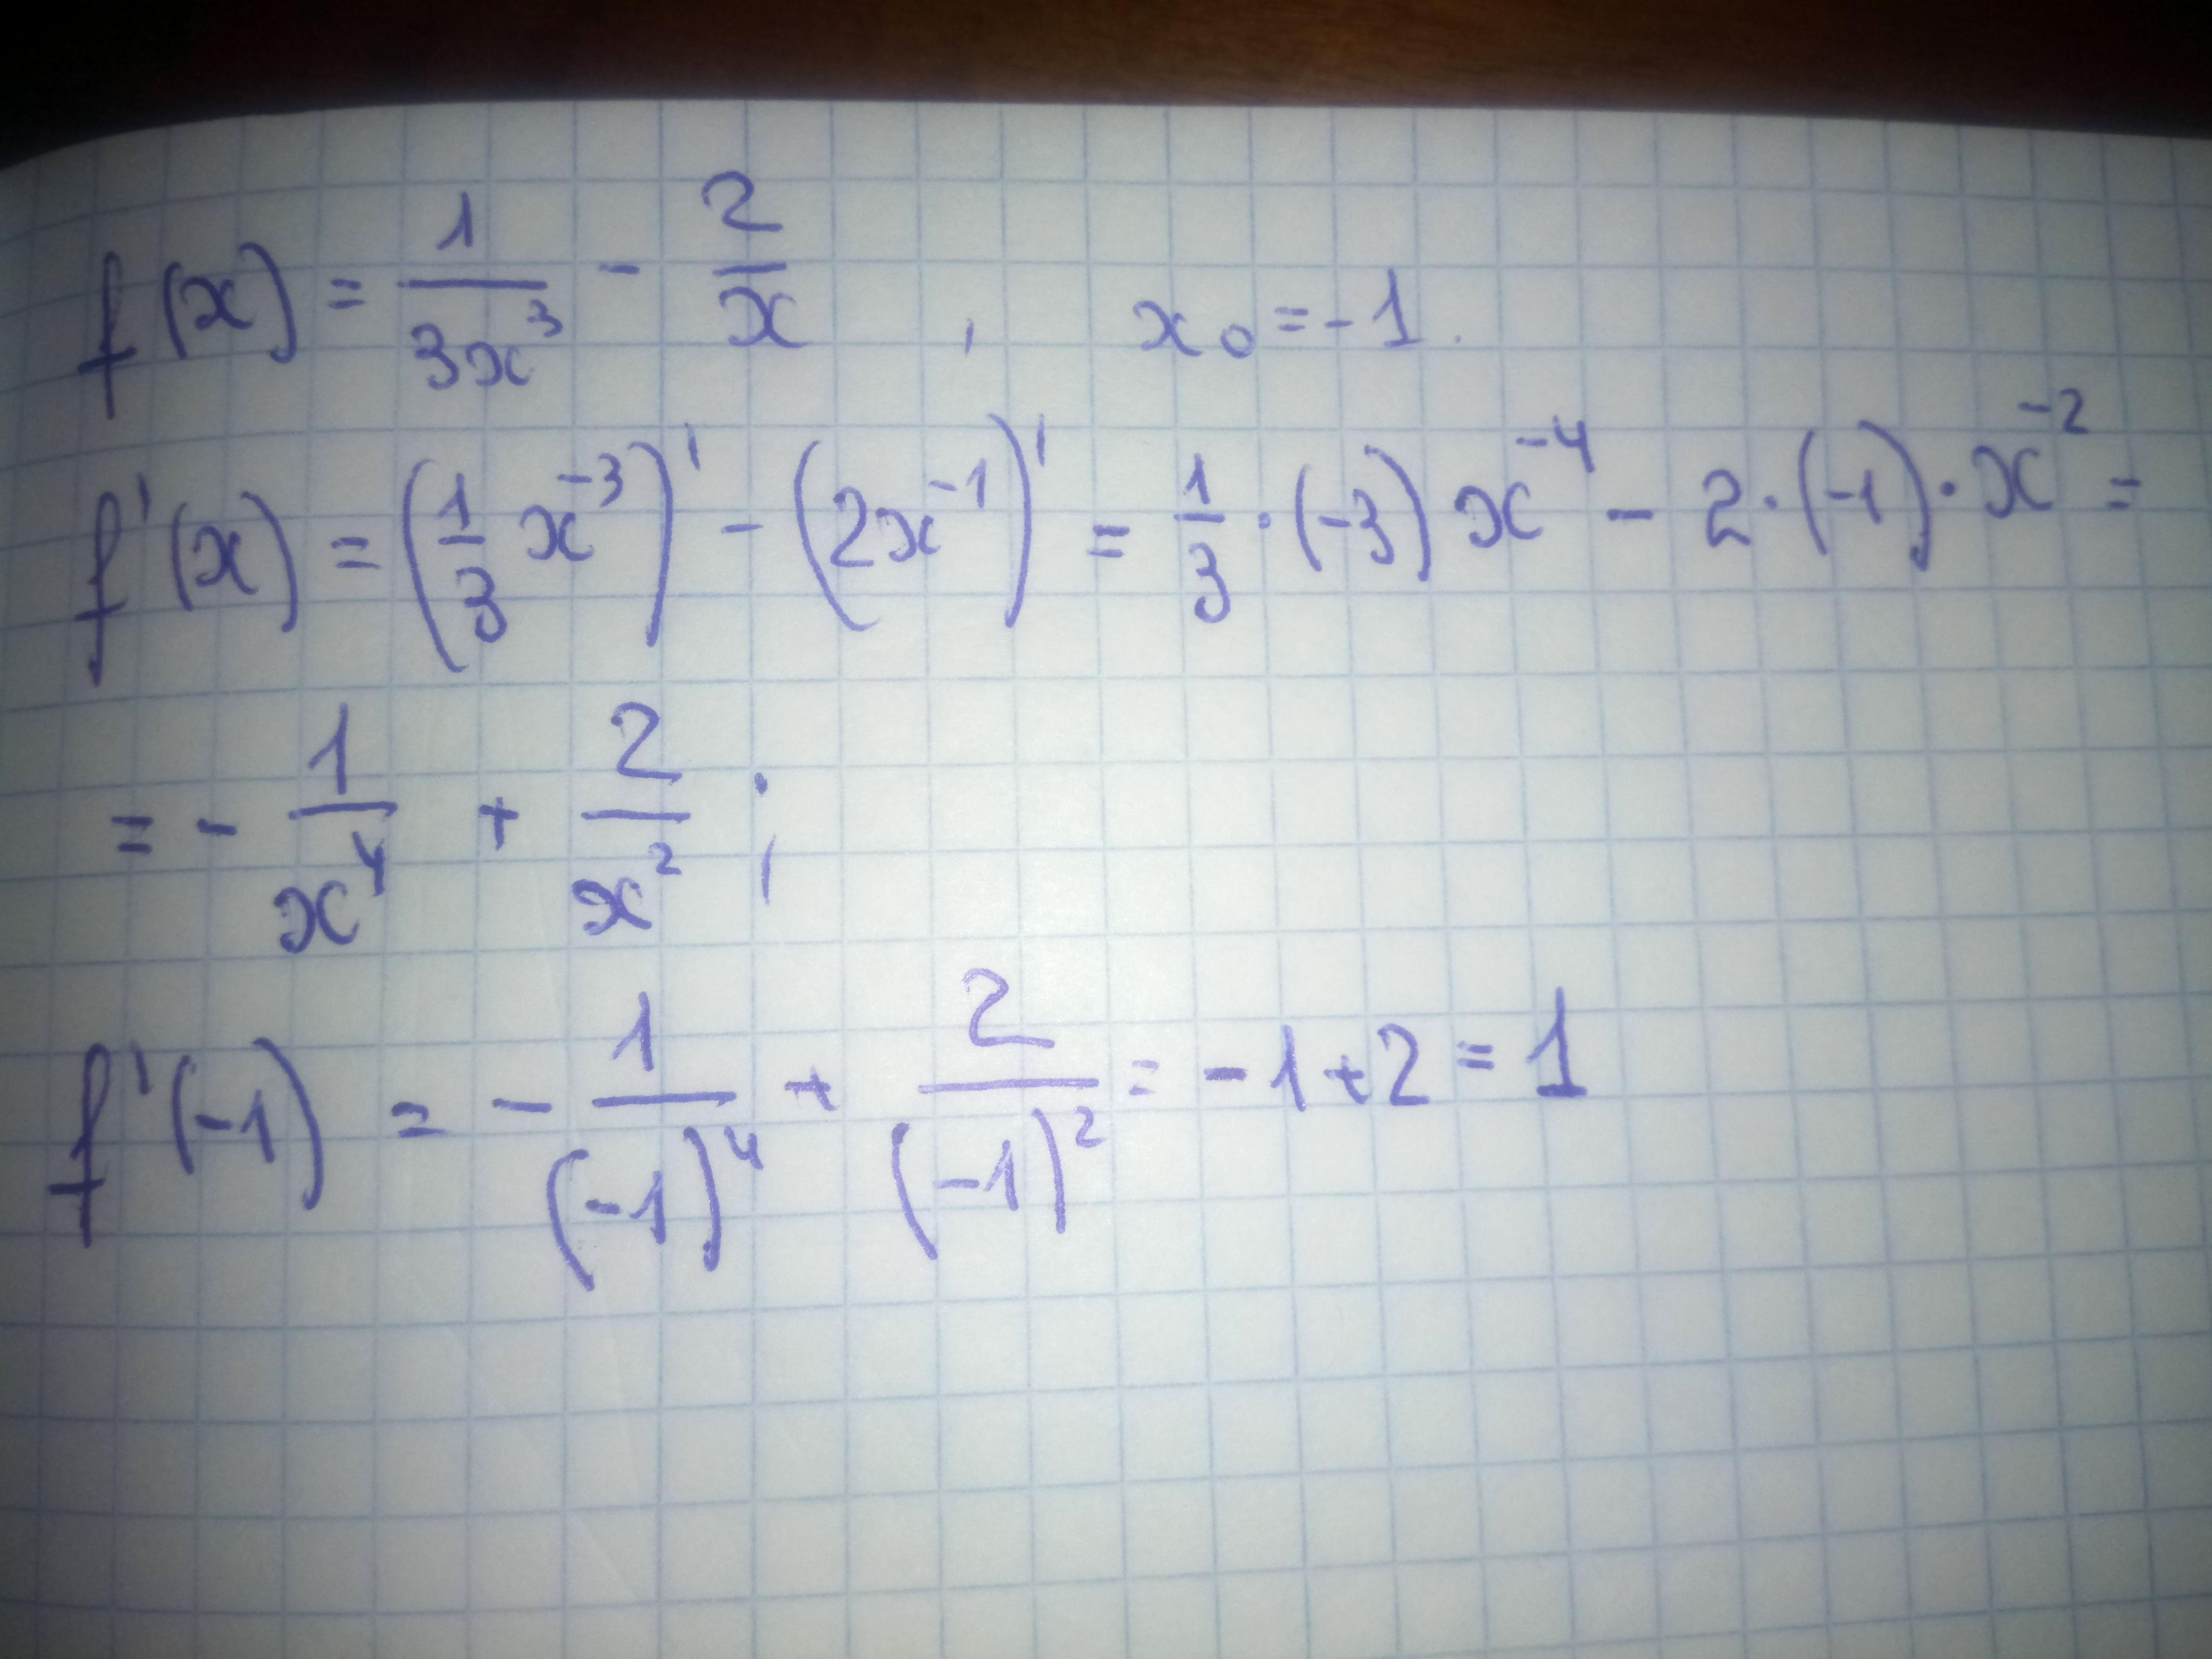 f(x) = 1/(3x³) - 2/x , x₀ = -1.
f'(x) = (1/3 x⁻³)' - (2x⁻¹)' = 1/3 · (-3) x⁻⁴ - 2 · (-1) · x⁻² =
= - 1/x⁴ + 2/x² ;
f'(-1) = - 1/(-1)⁴ + 2/(-1)² = -1+2 = 1